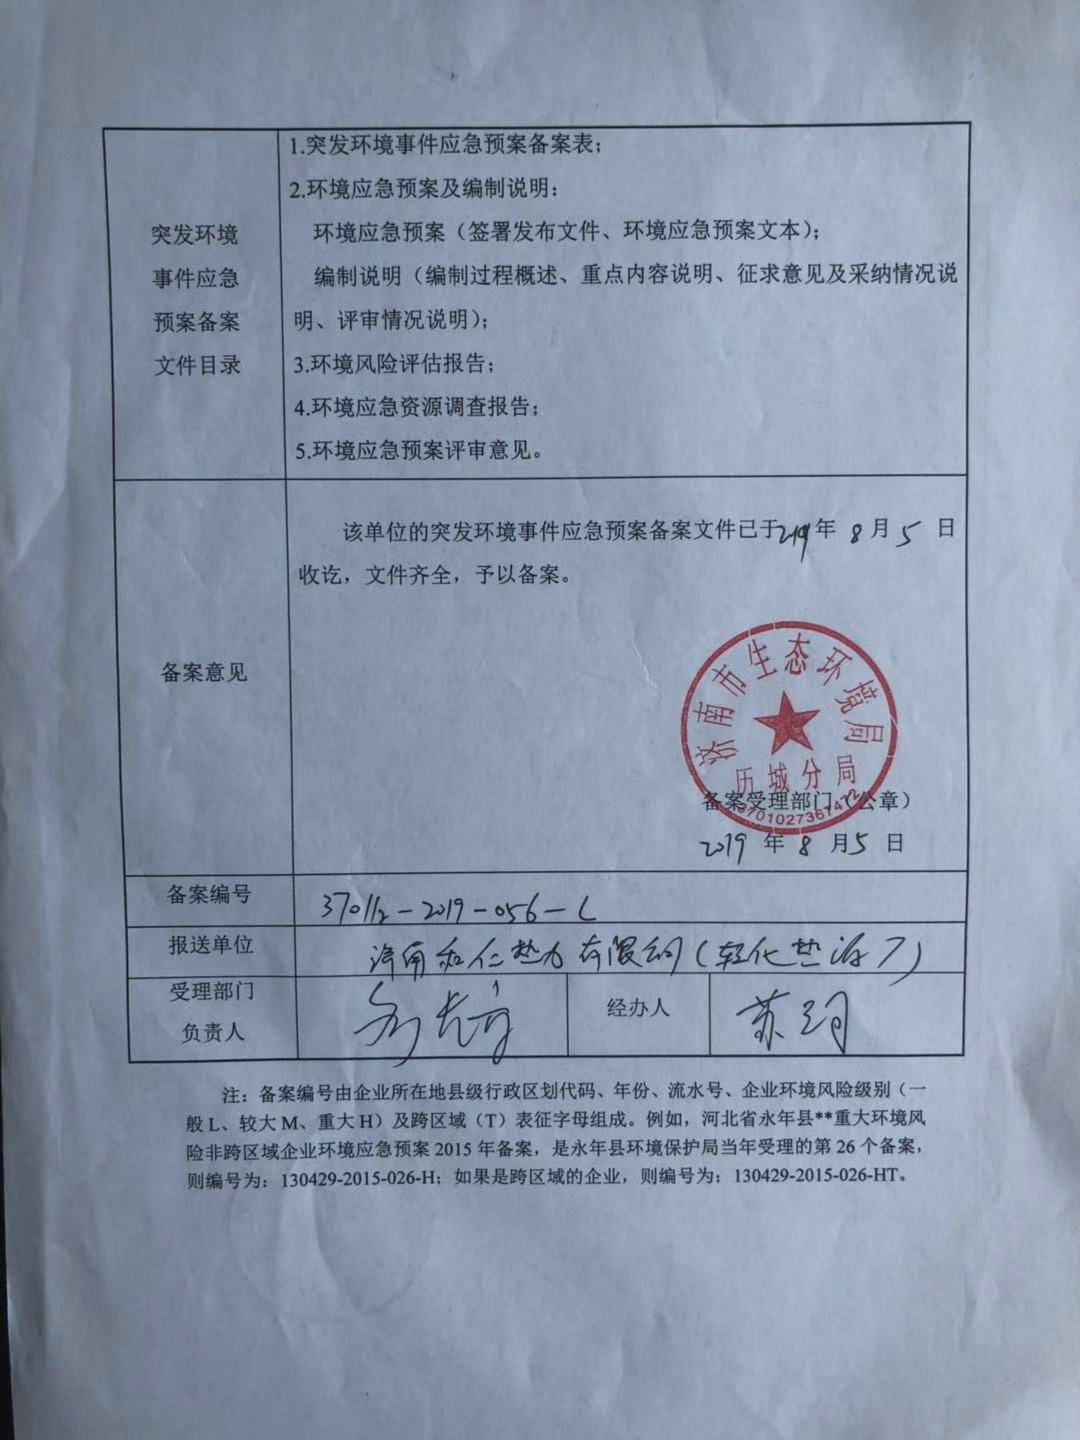 突发环境
事件应急
预案备案
文件目录
1.突发环境事件应急预案备案表；
2.环境应急预案及编制说明：
环境应急预案（签署发布文件、环境应急预案文本）；
编制说明（编制过程概述、重点内容说明、征求意见及采纳情况说
明、评审情况说明）；
3.环境风险评估报告；
4.环境应急资源调查报告；
5.环境应急预案评审意见。
备案意见
该单位的突发环境事件应急预案备案文件已于2019年 8月5 日
收讫，文件齐全，予以备案。
济南市生态环境局
历城分局
备案受理部门（公章）
2019 年 8 月5 日
备案编号
370112-2019-056-L
报送单位
济南和仁热力有限公司（轻化热源厂）
受理部门
负责人
经办人
苏
注：备案编号由企业所在地县级行政区划代码、年份、流水号、企业环境风险级别（一
般 L、较大 M、重大 H）及跨区域（T）表征字母组成。例如，河北省永年县**重大环境风
险非跨区域企业环境应急预案 2015 年备案，是永年县环境保护局当年受理的第 26 个备案，
则编号为：130429-2015-026-H；如果是跨区域的企业，则编号为：130429-2015-026-HT。